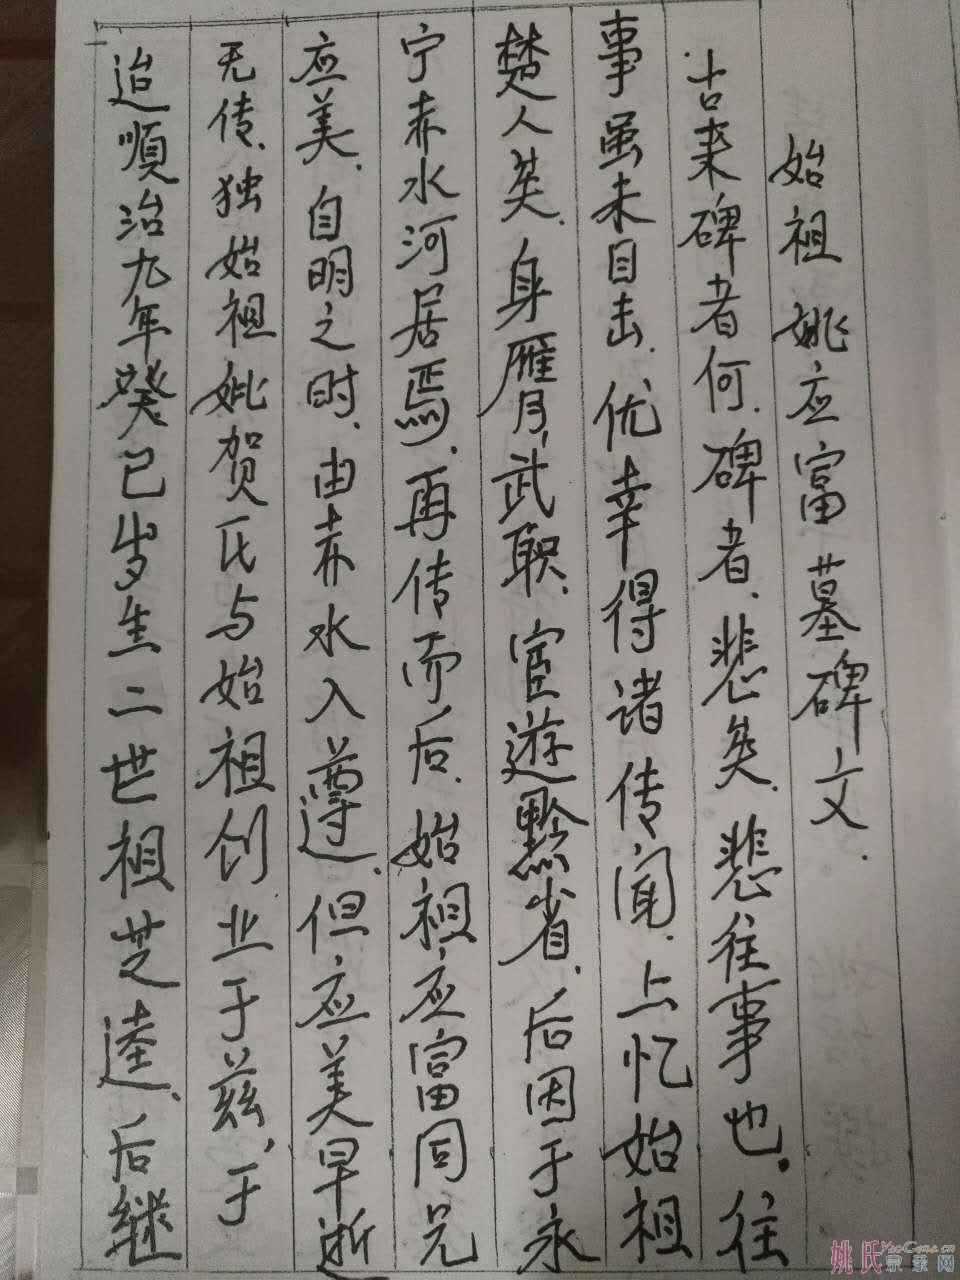 始祖姚应富墓碑文.
古来碑者何.碑者.悲矣.悲往事也.往
事虽未目击.优幸得诸传闻.上忆始祖
楚人矣.身雁月武职.宦遊黔省.后因于永
宁赤水河居焉.再传而后.始祖应富同兄
应美.自明之时.由赤水入遵.但应美早逝
无传.独始祖妣贺氏与始祖创业于兹,于
迨順治九年癸已岁生二世祖芝逵、后继
姚氏宗亲网
YaoGens.cn